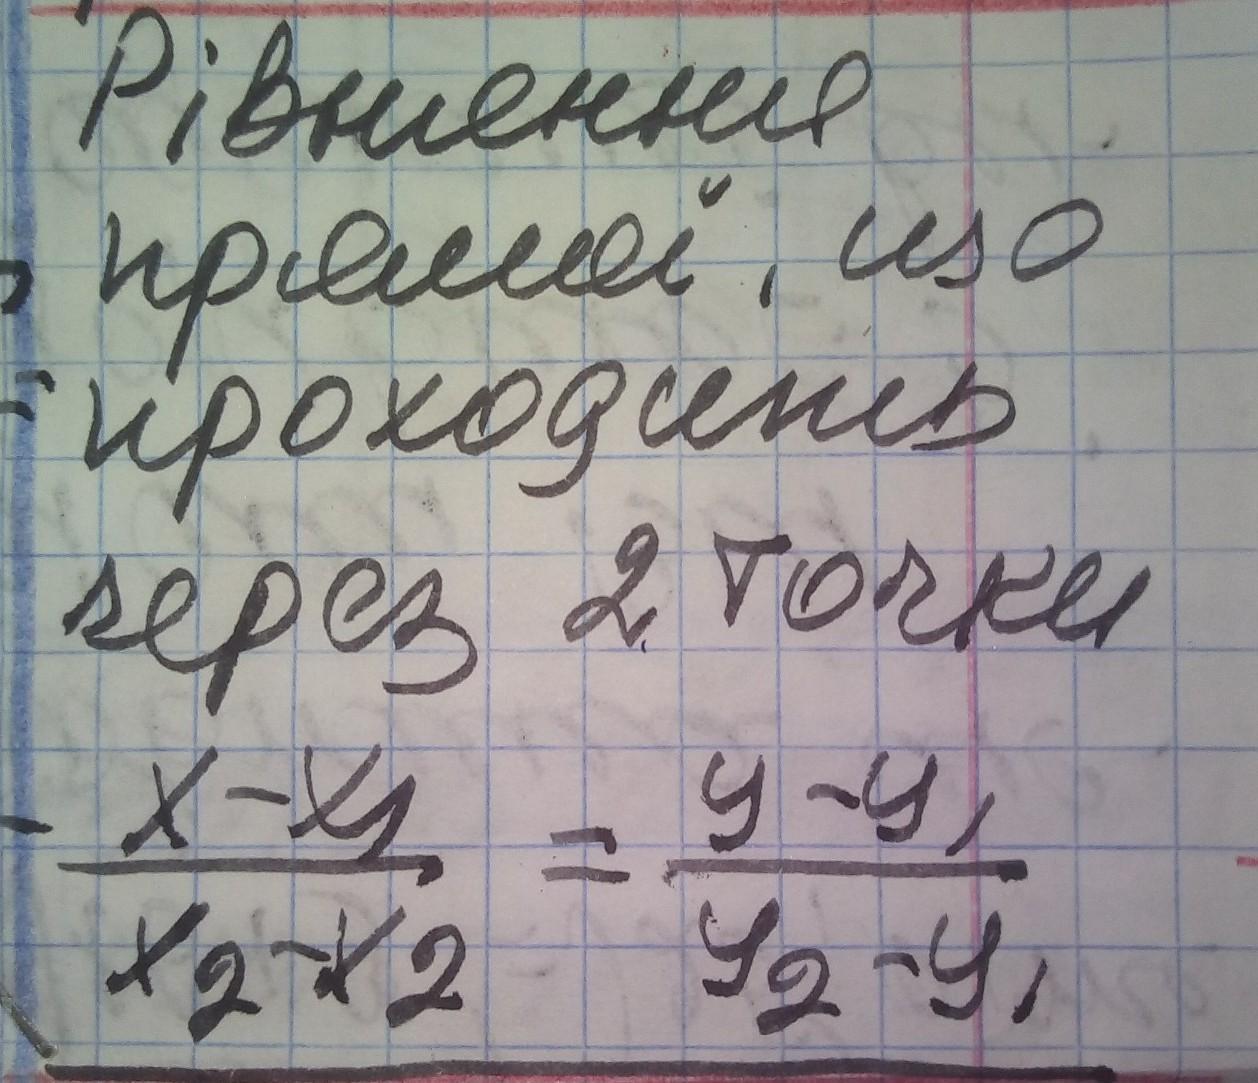 Рівняння
прямої, що
проходить
через 2 точки
x-x1 / x2-x2 = y-y1 / y2-y1